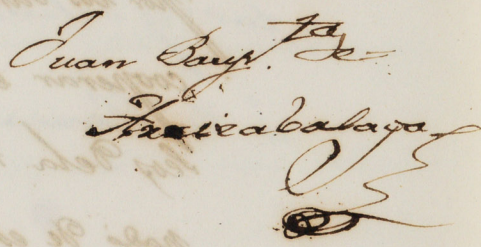 Juan Baupta de
Arrizabalaga